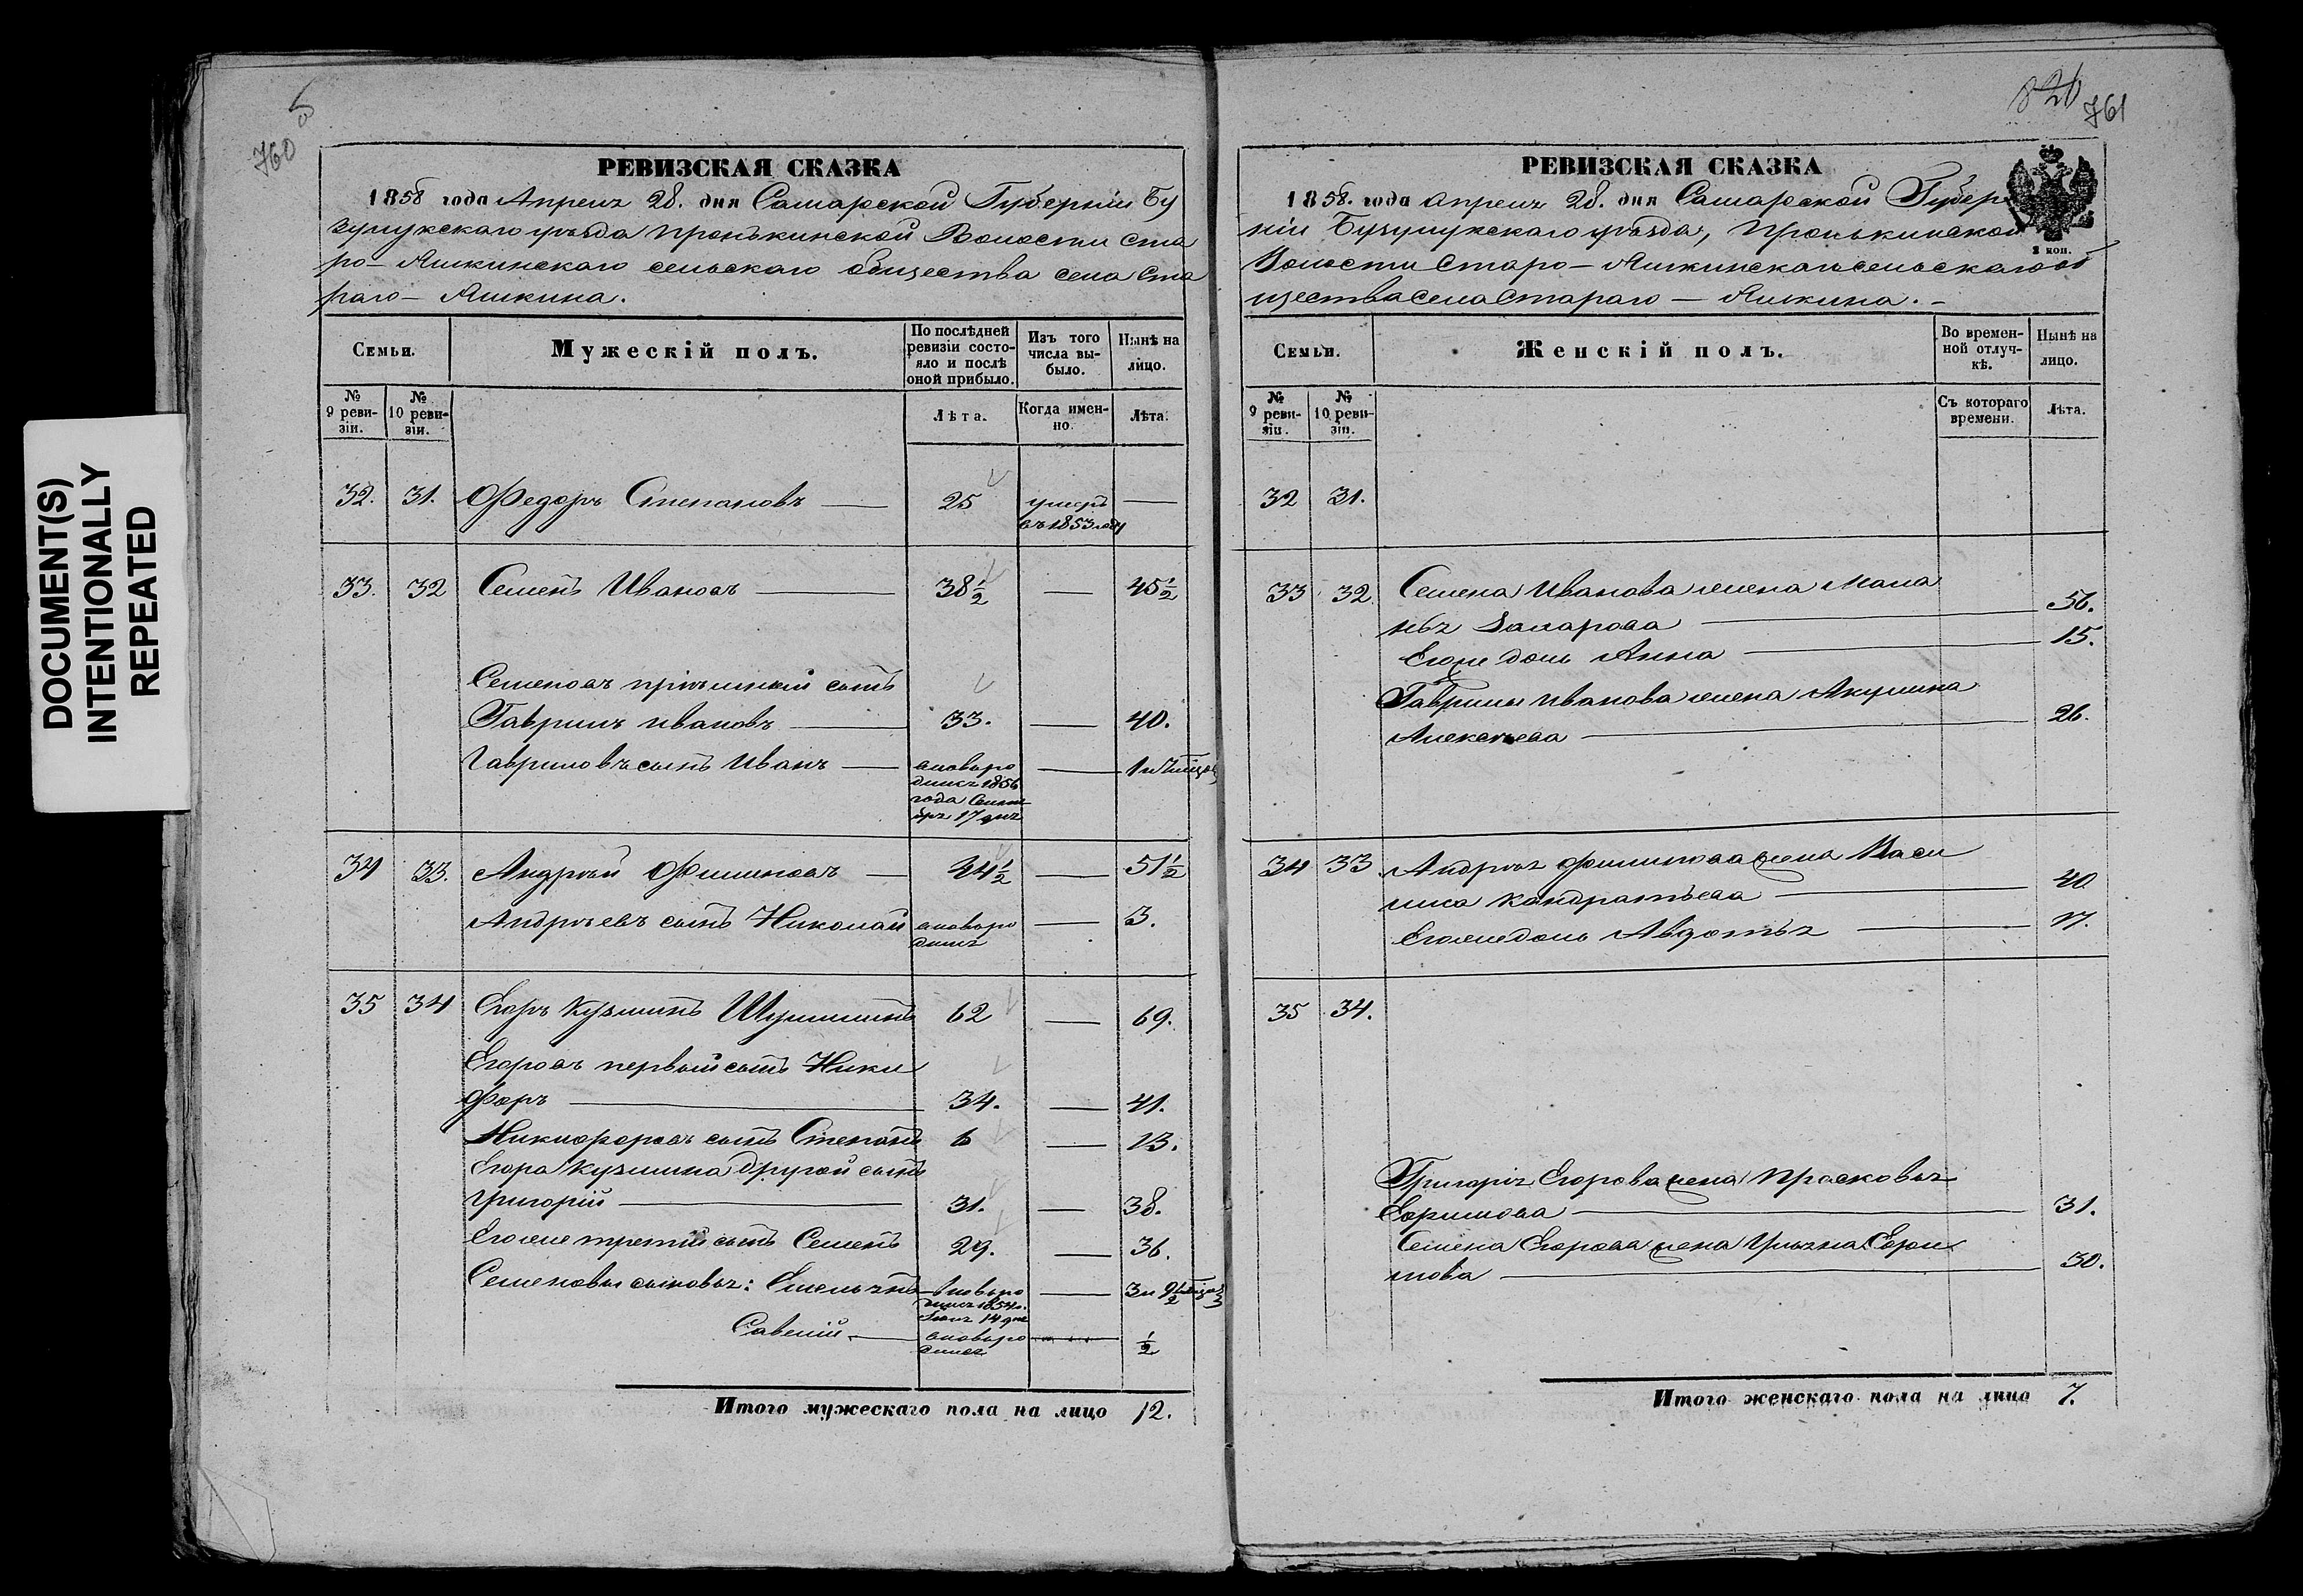 DOCUMENT(S)
INTENTIONALLY
REPEATED
760
РЕВИЗСКАЯ СКАЗКА
1858 года Апреля 28. дня Самарской Губерніи Бу
зулукскаго уѣзда Пронькинской Волости Ста
ро-Ашкинскаго сельскаго общества села Ста
раго-Ашкина.
Семьи.
Мужескій полъ.
По послѣдней ревизіи состояло и послѣ оной прибыло.
Изъ того числа выбыло.
Нынѣ на лицо.
№ 9 ревизіи.
№ 10 ревизіи.
Лѣта.
Когда именно.
Лѣта.
32. 31. Федоръ Степановъ — 25 умеръ —
въ 1853 году
33. 32 Семенъ Ивановъ — 38½ — 45½
Семеновъ пріемный сынъ
Гаврилъ Ивановъ — 33. — 40.
Гавриловъ сынъ Иванъ — вновь ро — 1 и
дился 1856
года
17 дня
34 33. Андрей Филиповъ — 44½ — 51½
Андреевъ сынъ Николай вновь ро — 3.
дился
35 34 Егоръ Кузминъ 62 — 69.
Егоровъ первый сынъ Ники
форъ — 34. — 41.
Никифоровъ сынъ Степанъ 6 — 13.
Егора Кузмина другой сынъ
Григорій — 31. — 38.
Егоже третій сынъ Семенъ 29. — 36.
Семеновы сыновья: Емельянъ вновь ро — 3 и
дился 1854 г.
14 дня
Савелій — вновь ро — ½
дился
Итого мужескаго пола на лицо 12.
820
761
РЕВИЗСКАЯ СКАЗКА
1858. года апреля 28. дня Самарской Губер
ніи Бузулукскаго уѣзда, Пронькинской
2 коп.
Волости Старо-Ашкинскаго сельскаго об
щества села Стараго-Ашкина.-
Семьи.
Женскій полъ.
Во временной отлучкѣ.
Нынѣ на лицо.
№ 9 ревизіи.
№ 10 ревизіи.
Съ котораго времени.
Лѣта.
32 31.
33 32. Семена Иванова жена Мала
нья Захарова — 56.
Егоже дочь Анна — 15.
Гаврилы Иванова жена Акулина
Алексеева — 26.
34 33 Андрея Филипова жена Васи
лиса Кондратьева — 40
Егоже дочь Авдотья — 17.
35 34.
Григорія Егорова жена Прасковья
Ефимова — 31.
Семена Егорова жена Ульяна Ефи
мова — 30.
Итого женскаго пола на лицо 7.